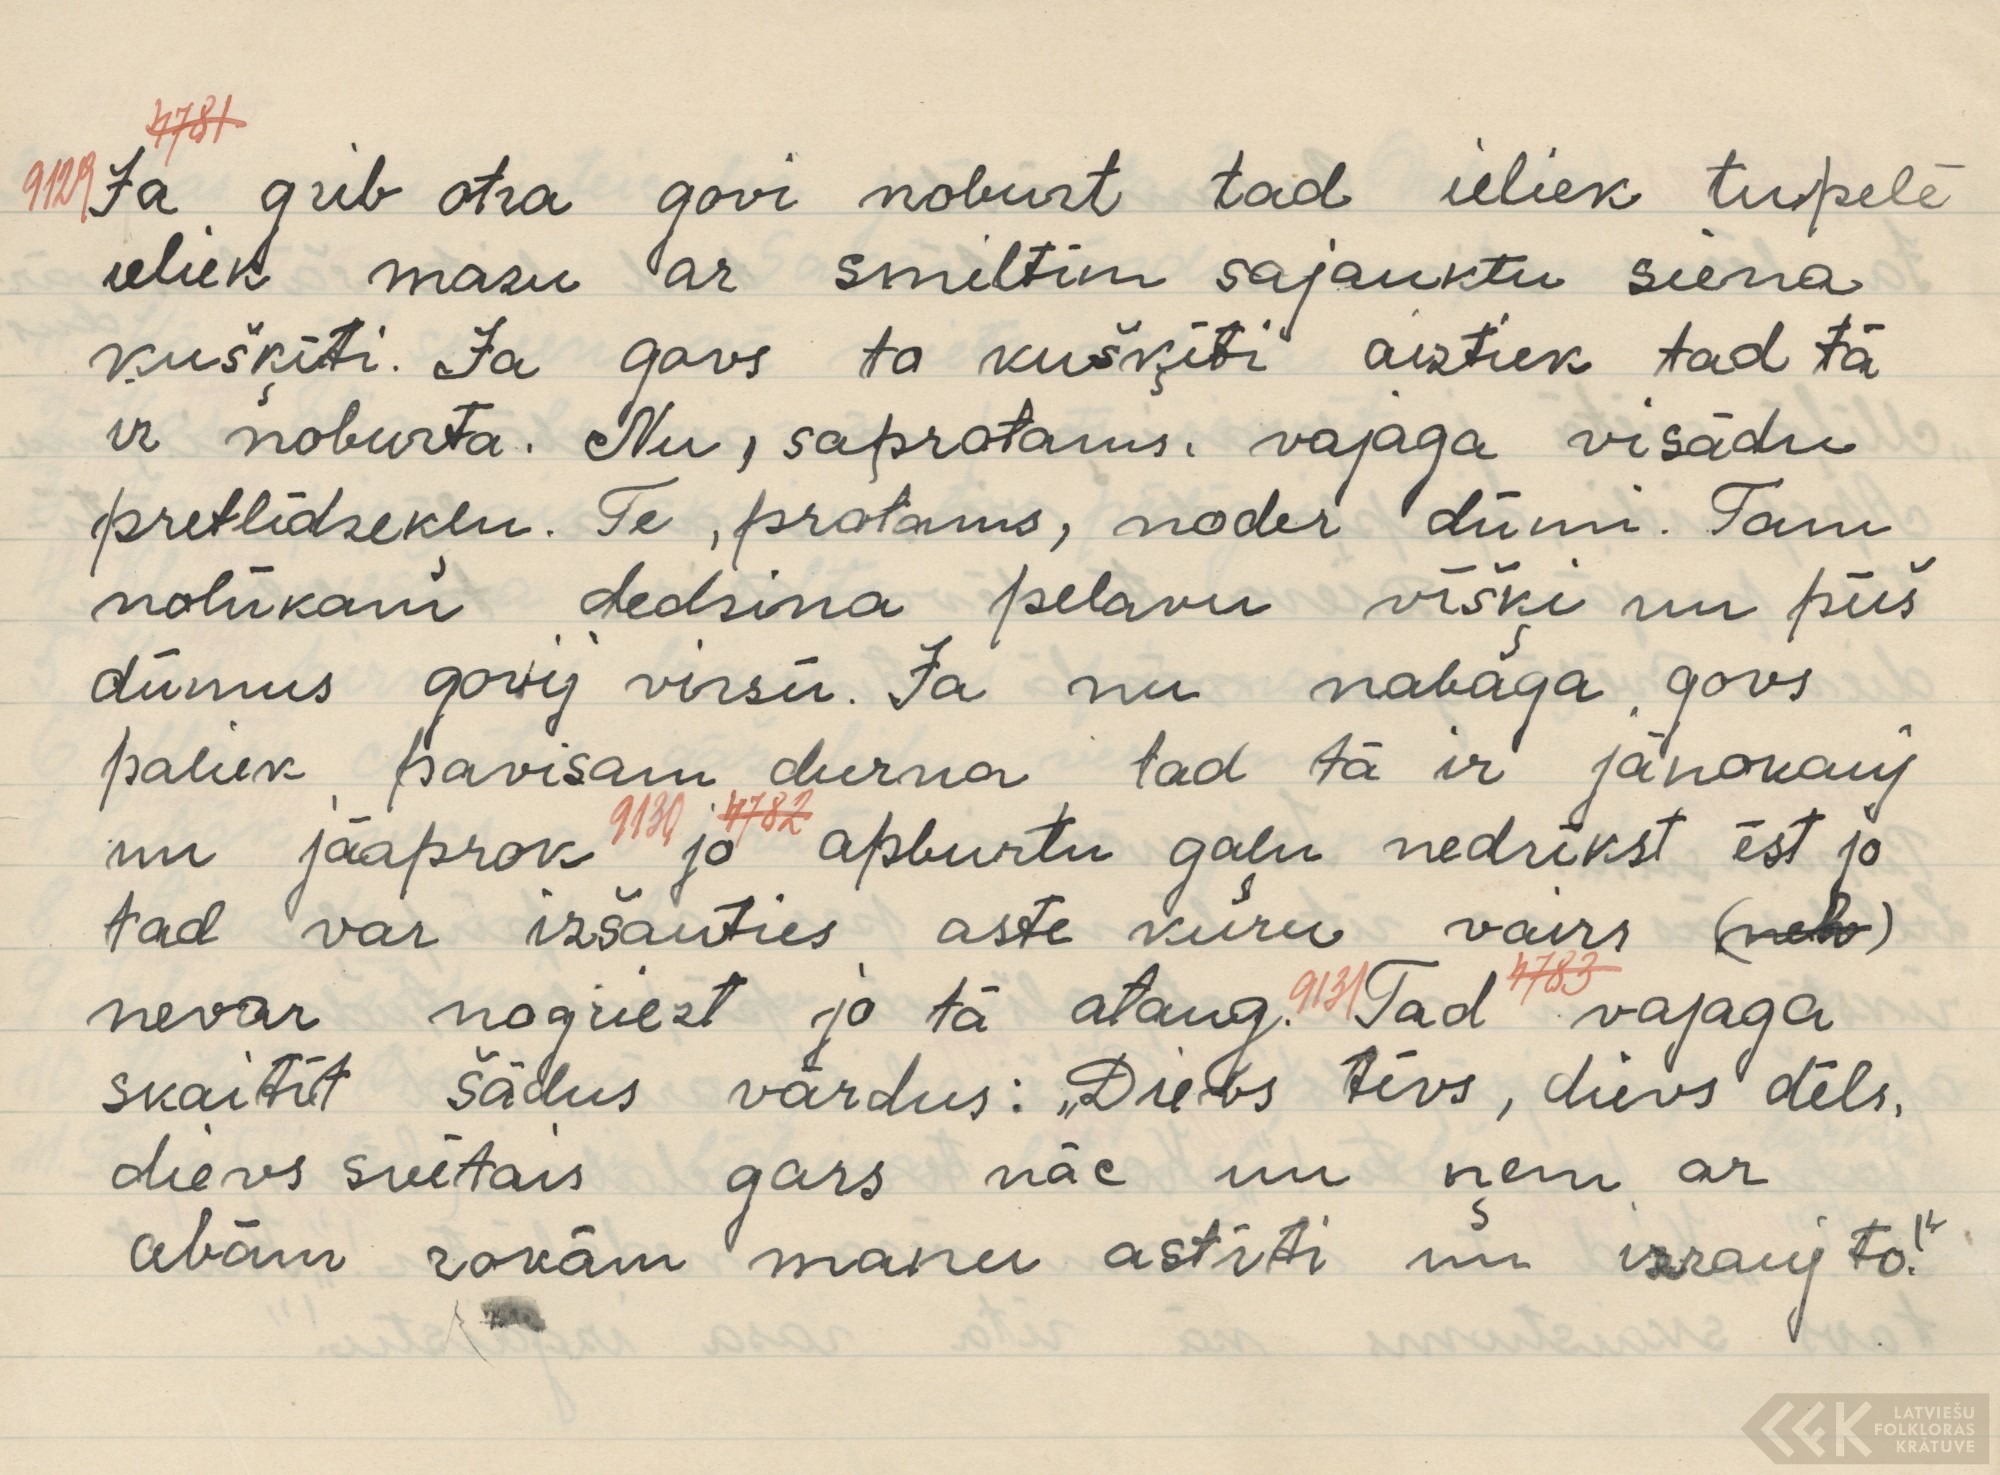 4781
9129 Ja grib otra govi noburt tad ieliek tupelē
ieliek mazu ar smiltīm sajauktu siena
kušķīti. Ja govs to kušķīti aiztiek tad tā
ir noburta. Nu, saprotams, vajaga visādu
pretlīdzekļu. Te, protams, noder dūmi. Tam
nolūkam dedzina pelavu vīšķi un pūš
dūmus govij virsū. Ja nu nabaga govs
paliek pavisam durna tad tā ir jānokauj
un jāaprok 9130 jo 4782 apburtu gaļu nedrīkst ēst jo
tad var izšauties aste kuru vairs
nevar nogriezt jo tā ataug. 9131 Tad 4783 vajaga
skaitīt šādus vārdus: „Dievs tēvs, dievs dēls,
dievs svētais gars nāc un ņem ar
abām rokām manu astīti un izrauj to!"
LATVIEŠU
FOLKLORAS
KRĀTUVE